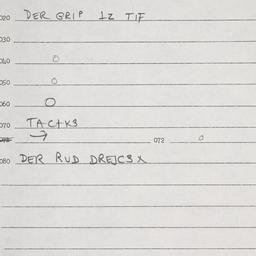 020 DER GRIP 1Z TIF
030
040 O
050 O
060 O
070 TACTKS
→ 072 O
080 DER RUD DREJCSX